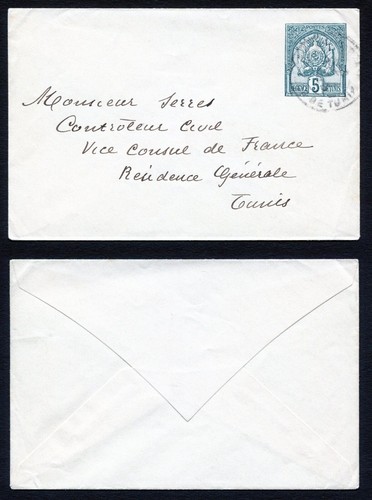 5
DE TUNIS
Monsieur Serres
Contrôleur Civil
Vice Consul de France
Résidence Générale
Tunis